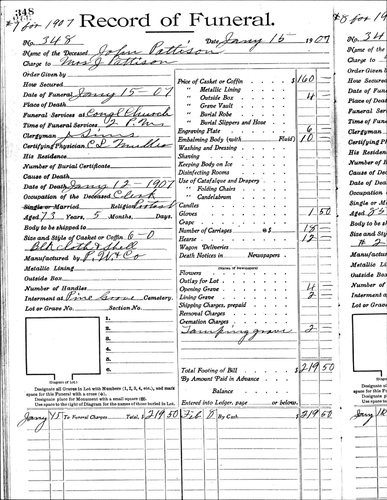 348
#7 for 1907
Record of Funeral.
No. 348
Date Jany 15 1907
Name of the Deceased John Pattison
Charge to Mrs J Pattison
Order Given by
How Secured
Date of Funeral Jany 15-07
Place of Death
Funeral Services at Congl Church
Time of Funeral Services 2 P.M.
Clergyman Sims
Certifying Physician
His Residence
Number of Burial Certificate
Cause of Death
Date of Death Jany 12-1907
Occupation of the Deceased Clerk
Single or Married Religion
Aged 73 Years, 5 Months, Days.
Body to be shipped to
Size and Style of Casket or Coffin 6-0
Blk Cloth
Manufactured by
Metallic Lining
Outside Box
Number of Handles
Interment at Pine Grove Cemetery.
Lot or Grave No. Section No.
1.
2.
3.
4.
5.
6.
(Diagram of Lot.)
Designate all Graves in Lot with Numbers (1, 2, 3, 4, etc.), and mark
space for this Funeral with a cross (x).
Designate place for Monument with a small square
Use space to right of Diagram for the names of those buried in Lot.
Price of Casket or Coffin $ 160
" Metallic Lining
" Outside Box 4
" Grave Vault
" Burial Robe
" Burial Slippers and Hose
Engraving Plate 6
Embalming Body (with Fluid) 10
Washing and Dressing
Shaving
Keeping Body on Ice
Disinfecting Rooms
Use of Catafalque and Drapery
" Folding Chairs
" Candelabrum
Candles
Gloves 1 50
Crape
Number of Carriages @ $ 18
Hearse 12
Wagon Deliveries
Death Notices in Newspapers
Flowers
Outlay for Lot
Opening Grave 4
Lining Grave 2
Shipping Charges, prepaid
Removal Charges
Cremation Charges
Tamping grave 2
Total Footing of Bill $ 219 50
By Amount Paid in Advance
Balance
Entered into Ledger, page or below.
Jany 15 To Funeral Charges Total, $ 219 50 Feb 8 By Cash $ 219 50
#8 for
No. 34
Name of the
Charge to
Order Given
Date of Fune
Place of Dea
Funeral Ser
Time of Fun
Clergyman
Certifying P
His Residen
Number of B
Cause of De
Date of Dea
Occupation
Single or Ma
Aged
Body to be s
Size and Sty
Manufactur
Metallic Lin
Outside Box
Number of H
Interment at
Lot or Grave